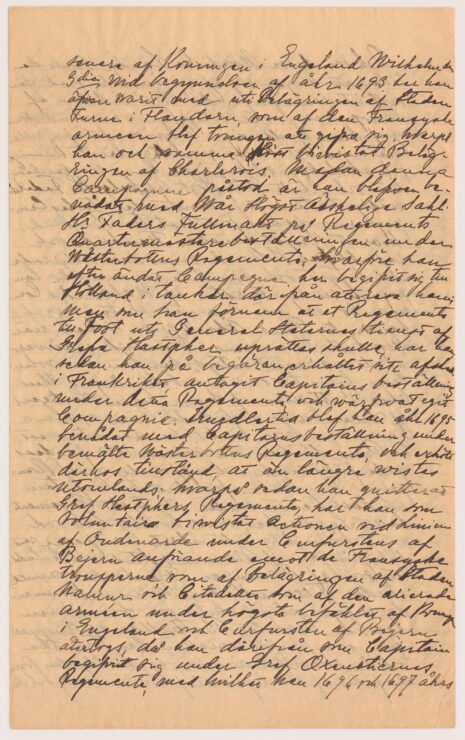 senare af Konungen i England Wilhelm den
3die, vid begynnelsen af åhr 1693 har han
äfven warit med uti Belägringen af Staden
Furne i Flandern, som af den Fransyska
armeen blef tvungen att gifva sig, hwarpå
han och samma bivistat Beläg-
ringen af Charlerois. Medan denna
Campagnen påstod är han blefven be-
nådat med Wår Högst Älskelige Sahl.
Hr Faders Fullmakt på Regements
Quartermästare beställningen under
Wästerbottens Regemente, hwarföre han
efter ändat Campagne har begifvit sig till
Holland i tankar därifrån att resa hem,
men nu han förnam att et Regemente
till Foot uti General Staternes tienst af
Grefve Hastpher uprättas skulle, har han
sedan han på begäran erhållit sitt afsked
i Frankriket antagit Capitains beställning
under detta Regemente och wärfvat ett
Compagnie. Imedlertid blef han åhr 1695
benådat med Capitains beställning under
bemälte Wästerbottens Regemente, och erhölt
därhos tillstånd at än längre wistas
utomlands, hwarpå sedan han quitterat
Gref Hastphers Regemente, har han som
Volontaire bivistat Actionen vid linien
af Oudenarde under Curfursten af
Beijern anförande emot de Fransyske
troupperne som af Belägringen af Staden
Namur och Citadellet som af den alierade
arméen under högsta befählet af Konung
i Engeland och Curfursten af Bejern
återtogs, då han därifrån som Capitain
begifvit sig under Gref Oxenstiernas
Regemente, med hvilket han 1696 och 1697 åhrs